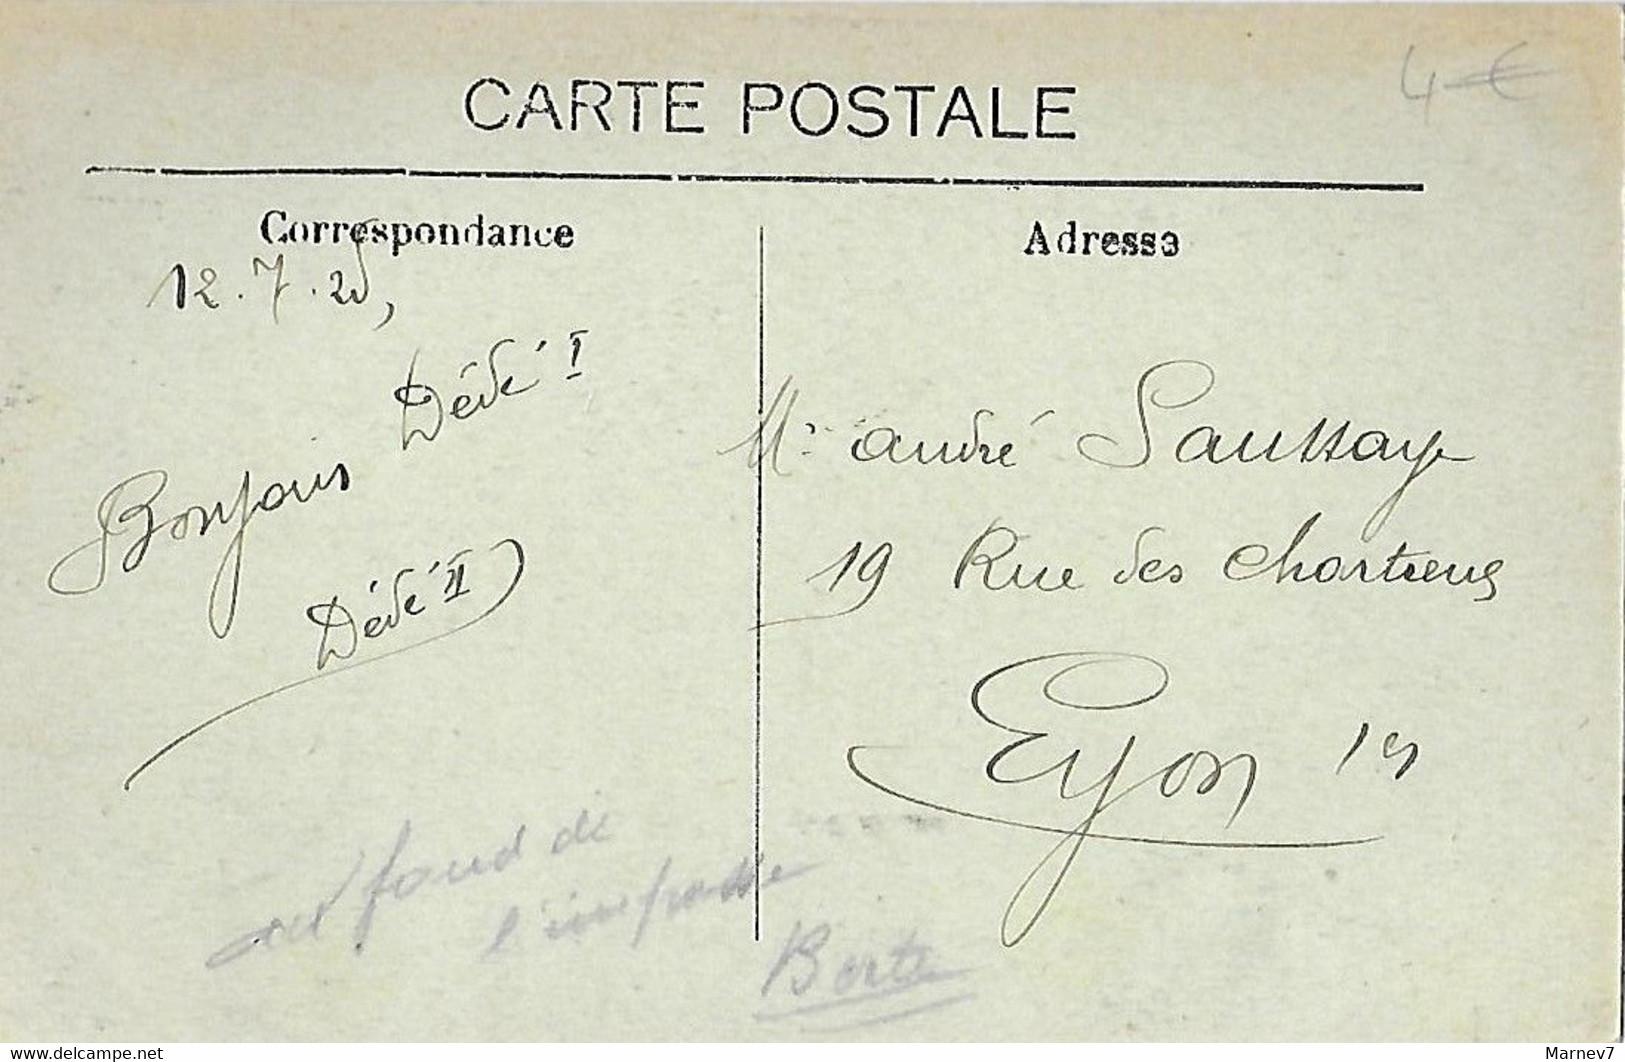 4 €
CARTE POSTALE
Correspondance
12.7.25,
Bonjour Dédé I
Dédé II
Adresse
Mr André Saussaye
19 Rue des Chartreux
Lyon 1er
au fond de
l'impasse
Berte
Marnev7
www.delcampe.net